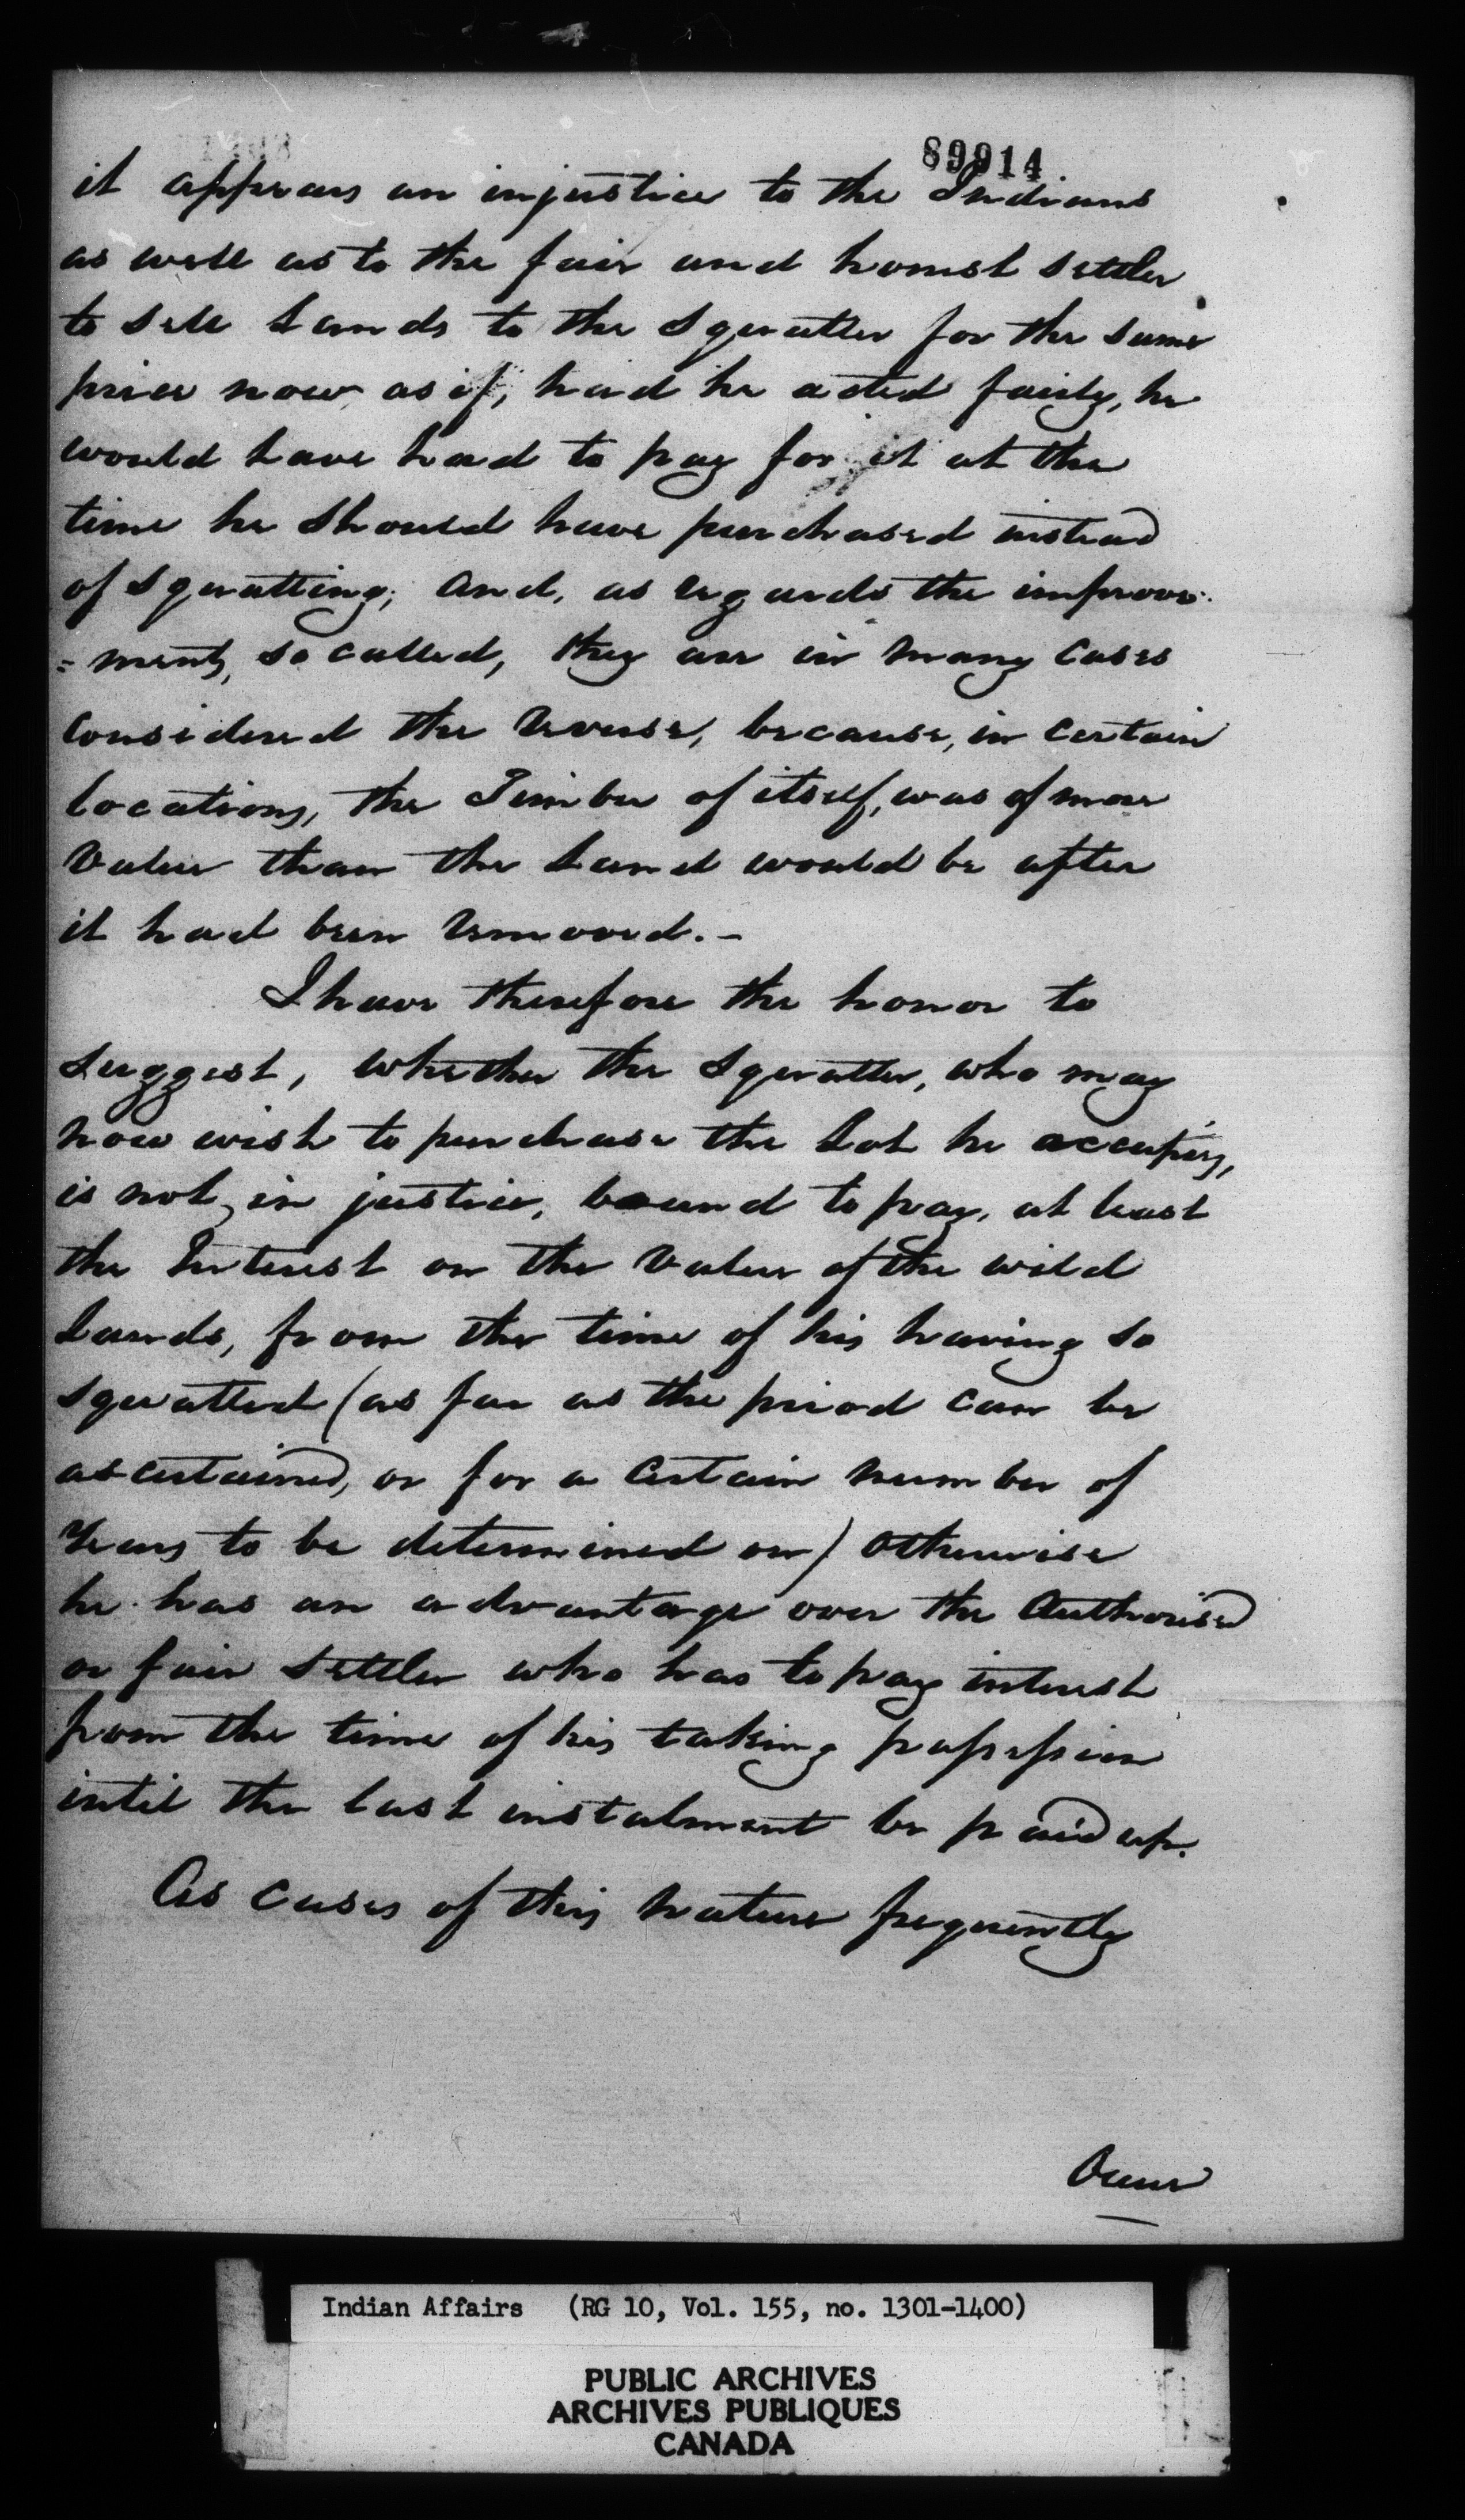 89914
it appears an injustice to the Indians
as well as to the fair and honest settler
to sell Lands to the Squatter for the same
price now as if, had he acted fairly, he
would have had to pay for it at the
time he should have purchased instead
of squatting; and, as regards the improve-
=ments, so called, they are in many cases
considered the reverse, because, in certain
locations, the Timber of itself, was of more
value than the Land would be after
it had been removed. -
I have therefore the honor to
suggest, whether the Squatter, who may
now wish to purchase the Lot he occupies,
is not, in justice, bound to pay, at least
the Interest on the value of the wild
Lands, from the time of his having so
squatted (as far as the period can be
ascertained, or for a certain number of
years to be determined on) otherwise
he has an advantage over the Authorised
or fair settler who has to pay interest
from the time of his taking possession
until the last instalment be paid up.
As cases of this nature frequently
Occur
Indian Affairs (RG 10, Vol. 155, no. 1301-1400)
PUBLIC ARCHIVES
ARCHIVES PUBLIQUES
CANADA